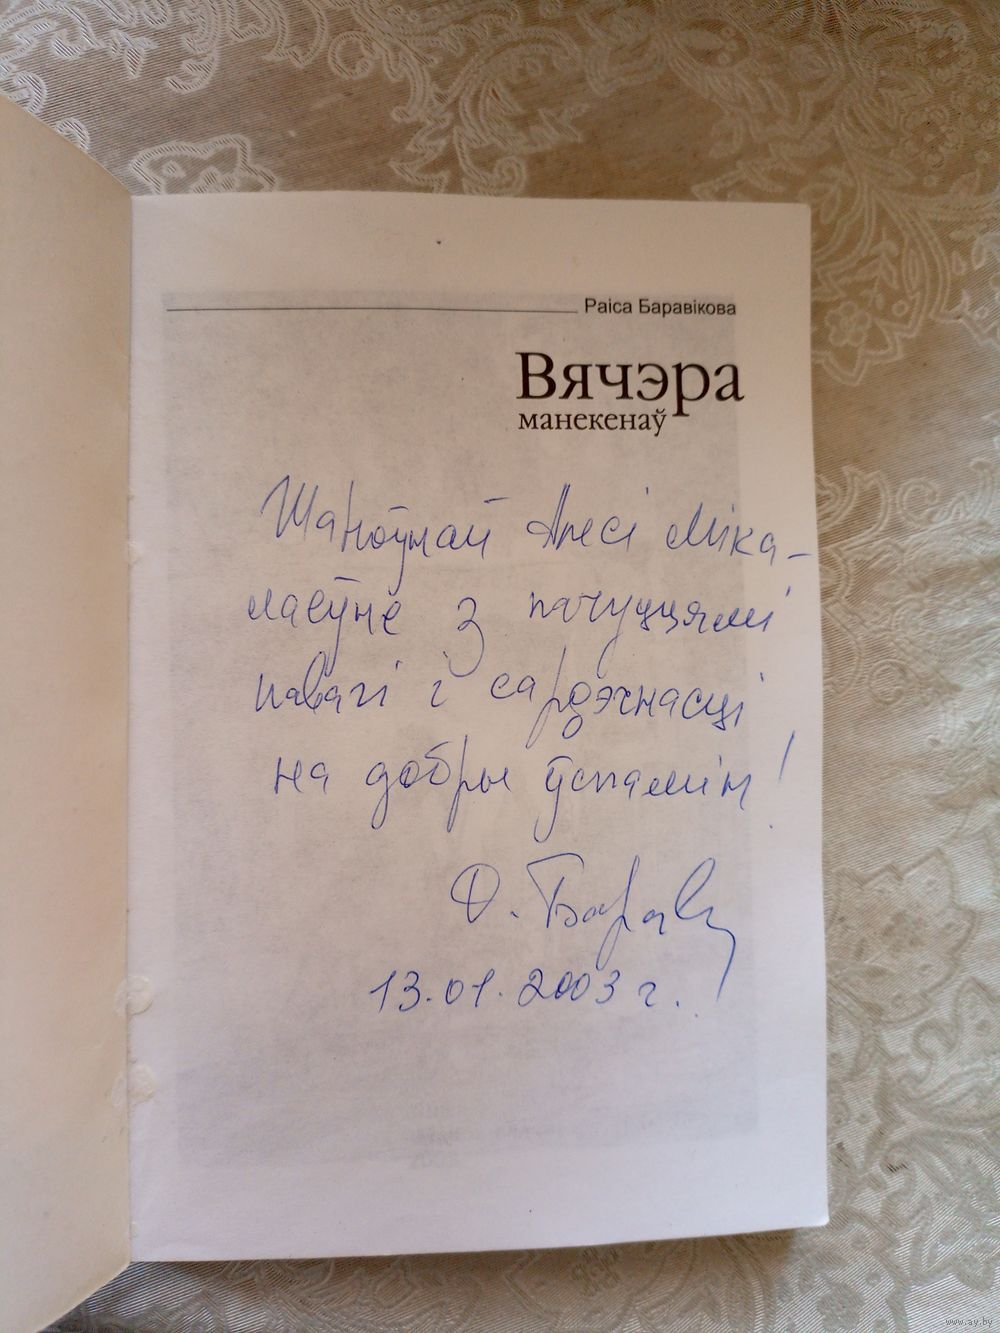 Раіса Баравікова
Вячэра
манекенаў
Шаноўнай Алесі Міка-
лаеўне з пачуццямі
павагі і сардэчнасці
на добры ўспамін!
Р. Барав
13.01.2003 г.
www.ay.by